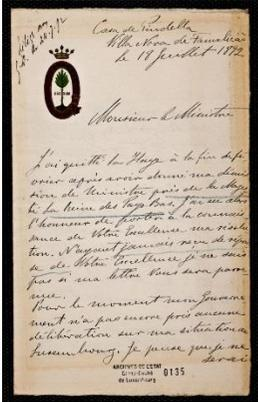 Casa de Pindella
Villa Nova de Famalicão
le 18 Juillet 1892
Monsieur le Ministre
J'ai quitté La Haye à la fin de fé-
vrier après avoir donné ma démis-
sion de Ministre près de Sa Majes-
té La Reine des Pays Bas. J'ai eu alors
l'honneur de porter à la connais-
sance de Votre Excellence ma résolu-
tion. N'ayant jamais reçu de répon-
se de Votre Excellence je ne sais
pas si ma lettre Vous sera parve-
nue.
Pour le moment mon Gouverne-
ment n'a pas encore pris aucune
délibération sur ma situation au
Luxembourg. Je pense que je ne
serai
ARCHIVES DE L'ETAT
Grand-Duché
de Luxembourg
0135